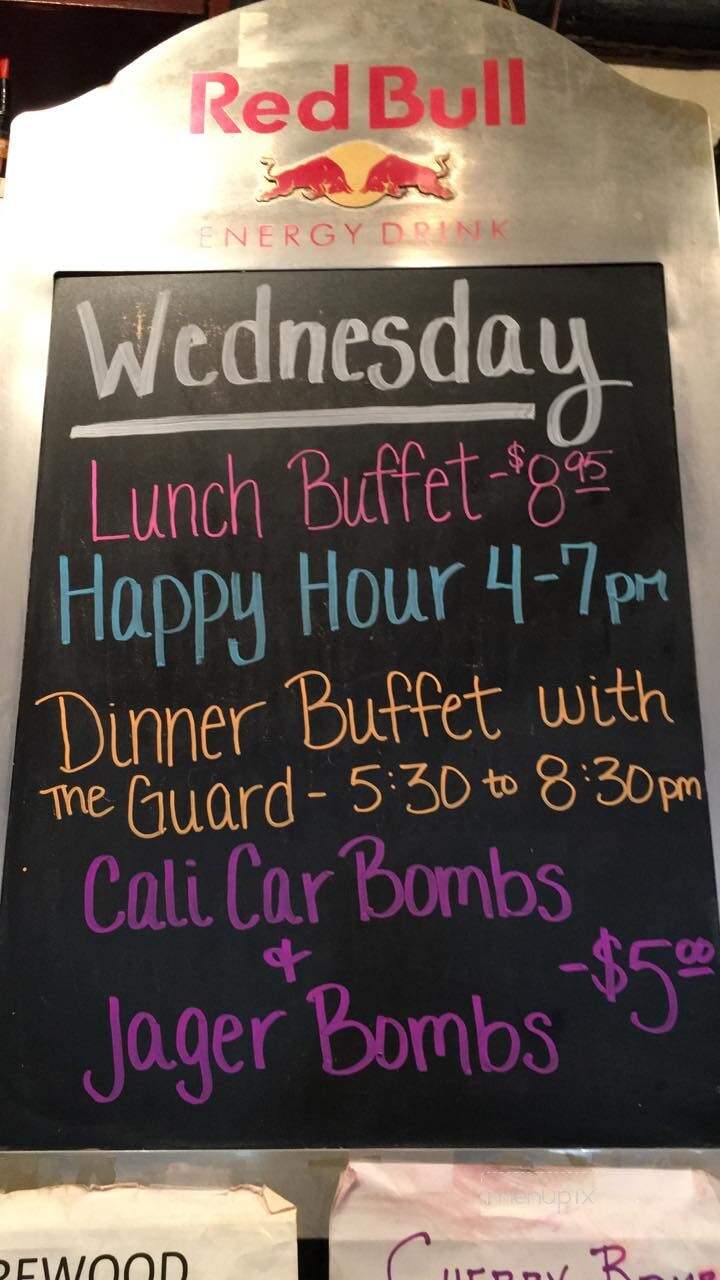 Red Bull
ENERGY DRINK
Wednesday
Lunch Buffet - $8 95
Happy Hour 4-7pm
Dinner Buffet with
The Guard - 5:30 to 8:30pm
Cali Car Bombs
&
- $5 00
Jager Bombs
menupix